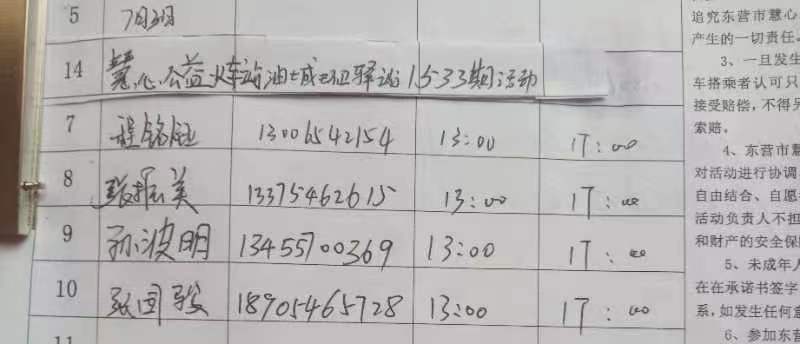 5 7月3日
14 慧心公益火车站油城红驿站1533期活动
7 程铭钰 13006542154 13:00 17:00
8 张振美 13375462615 13:00 17:00
9 孙波明 13455700369 13:00 17:00
10 张国骏 18905465728 13:00 17:00
11
追究东营市慧心
产生的一切责任。
3、一旦发生
车搭乘者认可只
接受赔偿，不得另
索赔。
4、东营市慧
对活动进行协调
自由结合、自愿
活动负责人不担
和财产的安全保
5、未成年人
在在承诺书签字
系，如发生任何意
6、参加东营